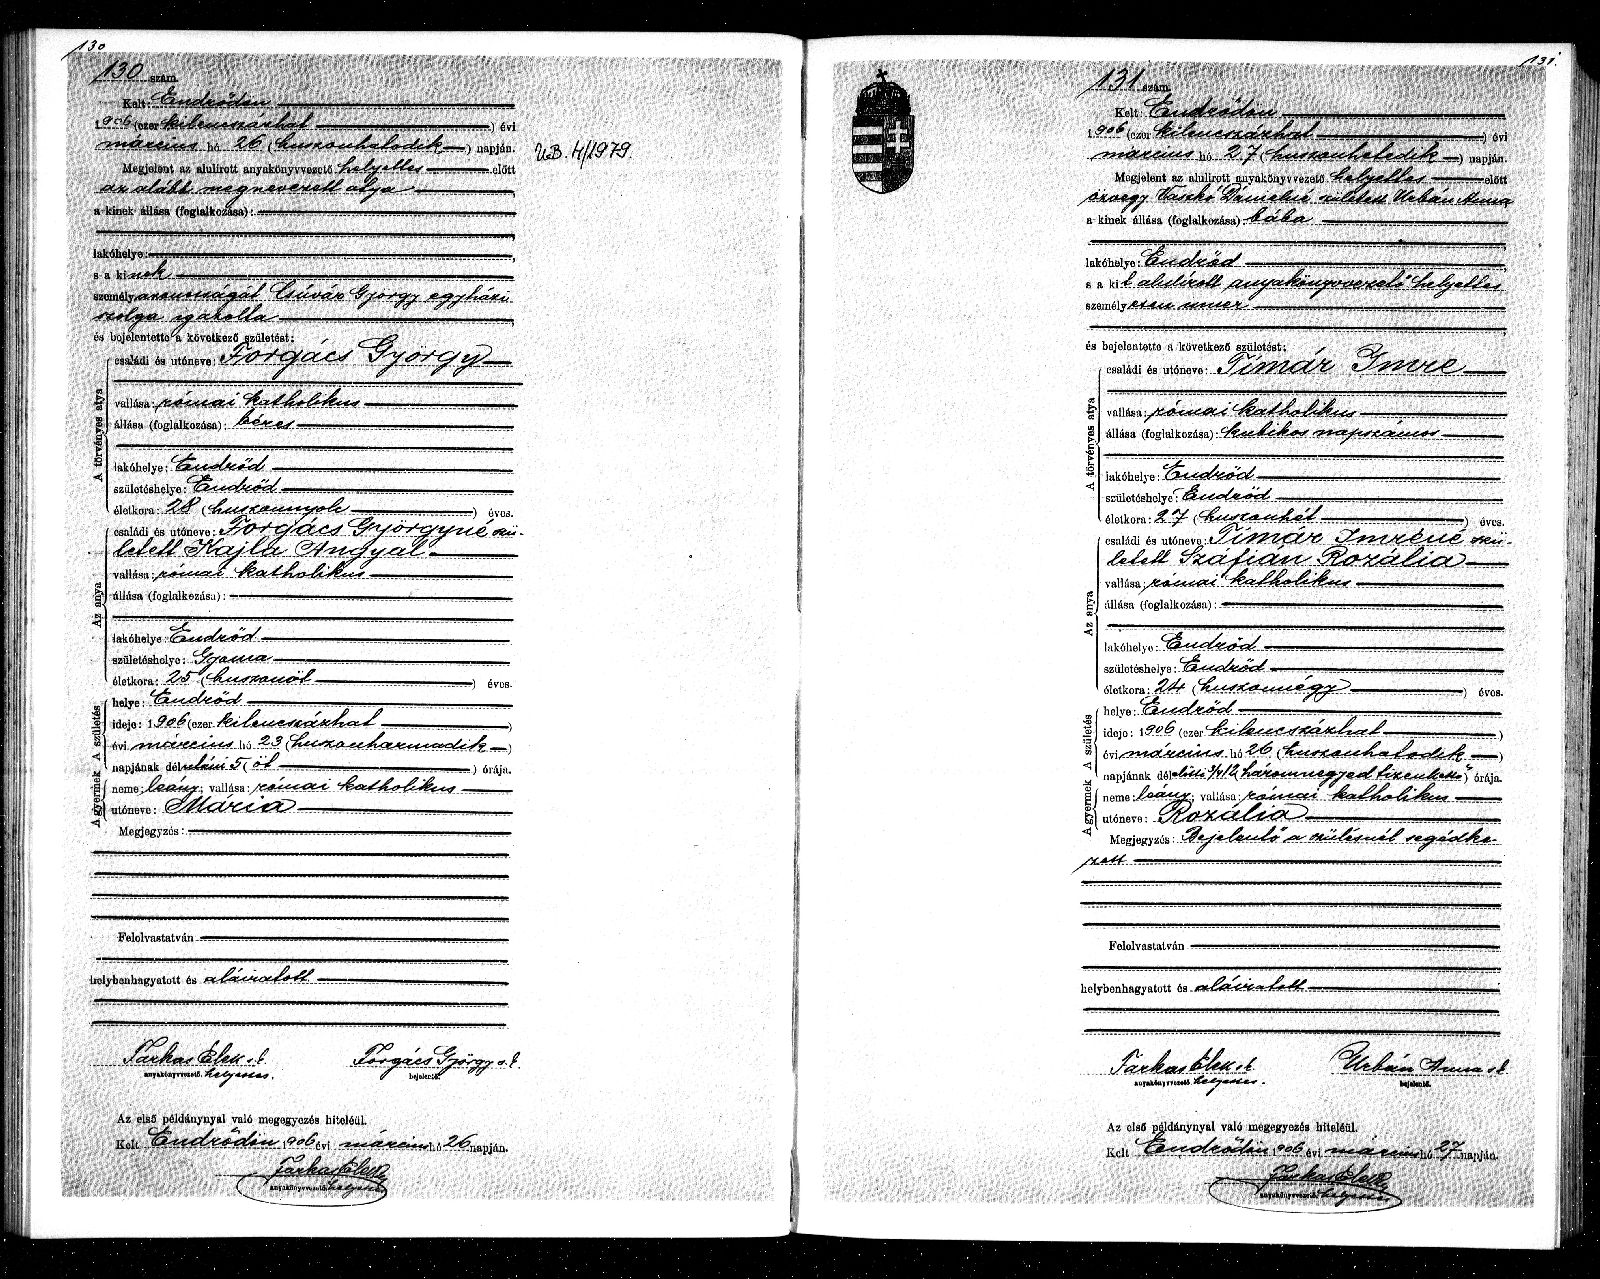 130
130 szám.
Kelt: Endrődön
1906 (ezer kilenczszázhat) évi
március hó 26 (huszonhatodik) napján.
Megjelent az alulirott anyakönyvvezető helyettes előtt
az alább megnevezett atya
a kinek állása (foglalkozása):
lakóhelye:
s a kinek
személyazonosságát Csúvár György egyházi
szolga igazolta
és bejelentette a következő születést:
A törvényes atya
családi és utóneve: Forgács György
vallása: római katholikus
állása (foglalkozása): béres
lakóhelye: Endrőd
születéshelye: Endrőd
életkora: 28 (huszonnyolc) éves.
Az anya
családi és utóneve: Forgács Györgyné szü-
letett Kajla Angyal
vallása: római katholikus
állása (foglalkozása):
lakóhelye: Endrőd
születéshelye: Gyoma
életkora: 25 (huszonöt) éves.
A születés
helye: Endrőd
ideje: 1906 (ezer kilenczszázhat)
évi március hó 23 (huszonharmadik)
napjának délutáni 5 (öt) órája.
A gyermek
neme: leány; vallása: római katholikus
utóneve: Mária
Megjegyzés:
Felolvastatván
helybenhagyatott és aláiratott
Farkas Elek s.k. Forgács György s.k.
anyakönyvvezető helyettes. bejelentő.
Az első példánynyal való megegyezés hiteléül.
Kelt Endrődön 1906 évi március hó 26 napján.
Farkas Elek
anyakönyvvezető helyettes
U.B. 4/1979.
131.
131 szám.
Kelt: Endrődön
1906 (ezer kilenczszázhat) évi
március hó 27 (huszonhetedik) napján.
Megjelent az alulirott anyakönyvvezető helyettes előtt
özvegy Vaszkó Dánielné született Urbán Anna
a kinek állása (foglalkozása): bába
lakóhelye: Endrőd
s a kit alulírott anyakönyvvezető helyettes
személyesen ismer
és bejelentette a következő születést:
A törvényes atya
családi és utóneve: Tímár Imre
vallása: római katholikus
állása (foglalkozása): kubikos napszámos
lakóhelye: Endrőd
születéshelye: Endrőd
életkora: 27 (huszonhét) éves.
Az anya
családi és utóneve: Tímár Imréné szü-
letett Száfián Rozália
vallása: római katholikus
állása (foglalkozása):
lakóhelye: Endrőd
születéshelye: Endrőd
életkora: 24 (huszonnégy) éves.
A születés
helye: Endrőd
ideje: 1906 (ezer kilenczszázhat)
évi március hó 26 (huszonhatodik)
napjának délelőtti 3/4 12 (háromnegyed tizenkettő) órája.
A gyermek
neme: leány; vallása: római katholikus
utóneve: Rozália
Megjegyzés: Bejelentő a szülésnél segédke-
zett
Felolvastatván
helybenhagyatott és aláiratott
Farkas Elek s.k. Urbán Anna s.k.
anyakönyvvezető helyettes. bejelentő.
Az első példánynyal való megegyezés hiteléül.
Kelt Endrődön 1906 évi március hó 27 napján.
Farkas Elek
anyakönyvvezető helyettes